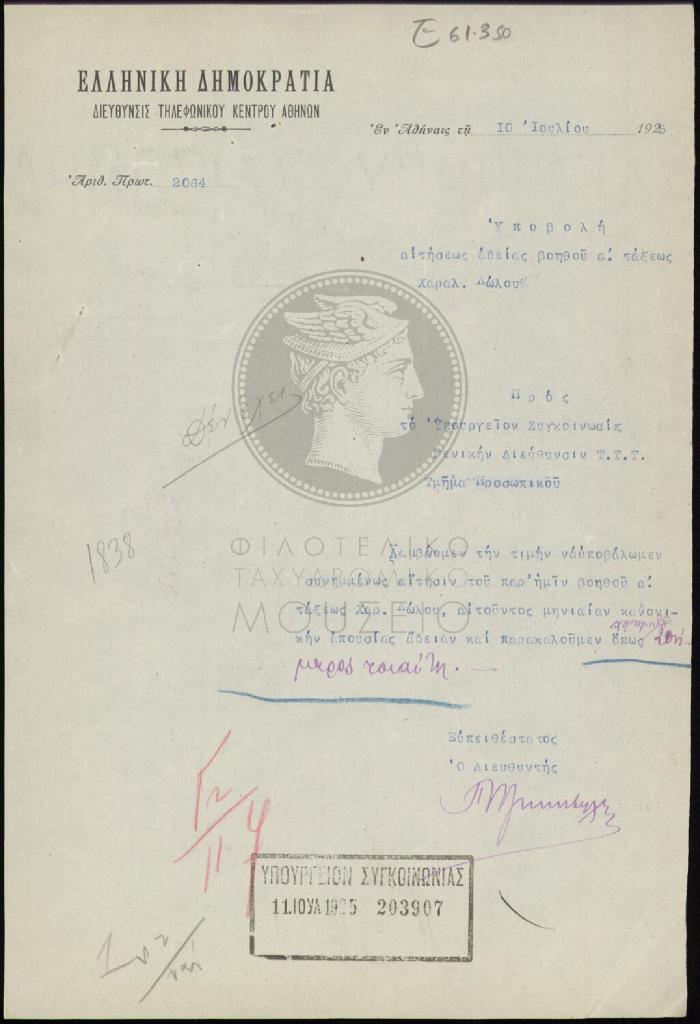 61.350
ΕΛΛΗΝΙΚΗ ΔΗΜΟΚΡΑΤΙΑ
ΔΙΕΥΘΥΝΣΙΣ ΤΗΛΕΦΩΝΙΚΟΥ ΚΕΝΤΡΟΥ ΑΘΗΝΩΝ
Ἐν Ἀθήναις τῇ 10 Ἰουλίου 1925
Ἀριθ. Πρωτ. 2064
Ὑποβολή
αἰτήσεως ἀδείας βοηθοῦ α΄ τάξεως
Χαραλ. Δώλου
Πρός
τό Ὑπουργεῖον Συγκοινωαίς
Γενικήν Διεύθυνσιν Τ.Τ.Τ.
Τμῆμα Προσωπικοῦ
1838
ΦΙΛΟΤΕΛΙΚΟ
ΤΑΧΥΔΡΟΜΙΚΟ
ΜΟΥΣΕΙΟ
Λαμβάνομεν τήν τιμήν νάὑποβάλωμεν
συνημμένως αἴτησιν τοῦ παρ'ἡμῖν βοηθοῦ α΄
τάξεως Χαρ. Δώλου, αἰτοῦντος μηνιαίαν κανονι-
κήν ἀπουσίας ἄδειαν καί παρακαλοῦμεν ὅπως
τοιαύτη.
Εὐπειθέστατος
Ὁ Διευθυντής
ΥΠΟΥΡΓΕΙΟΝ ΣΥΓΚΟΙΝΩΝΙΑΣ
11.ΙΟΥΛ 1925 203907